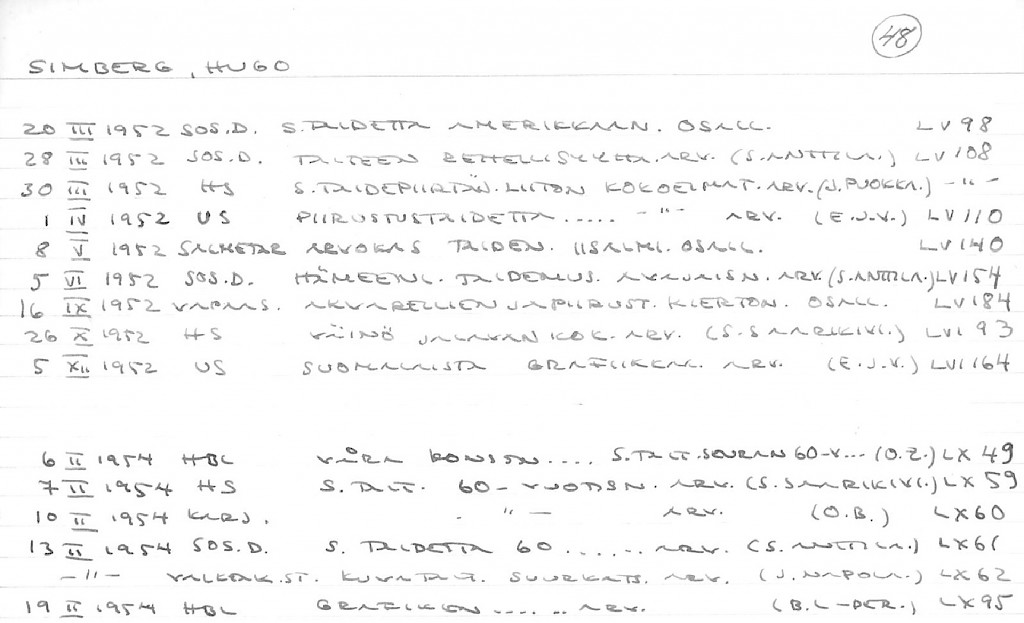 48
SIMBERG, HUGO
20 III 1952 SOS.D. S.TAIDETTA AMERIKKAAN. OSALL. LV 98
28 III 1952 SOS.D. TAITEEN REHELLISYYTTÄ. ARV. (S.ANTTILA.) LV 108
30 III 1952 HS S.TAIDEPIIRTÄJ. LIITON KOKOELMAT. ARV. (J.PUOKKA.) -"-
1 IV 1952 US PIIRUSTUSTAIDETTA ..... -"- ARV. (E.J.V.) LV 110
8 V 1952 SALMETAR ARVOKAS TAIDEN. IISALMI. OSALL. LV 140
5 VI 1952 SOS.D. HÄMEENL. TAIDEMUS. AVAJAISN. ARV. (S.ANTTILA.) LV 154
16 IX 1952 VAPAA S. AKVARELLIEN JA PIIRUST. KIERTON. OSALL. LV 184
26 X 1952 HS VÄINÖ JALAVAN KOK. ARV. (S.SAARIKIVI.) LVI 93
5 XII 1952 US SUOMALAISTA GRAFIIKKAA. ARV. (E.J.V.) LVI 164
6 II 1954 HBL VÅRA KONSTN .... S.TAIT.SEURAN 60-V... (O.Z.) LX 49
7 II 1954 HS S.TAIT. 60-VUOTISN. ARV. (S.SAARIKIVI.) LX 59
10 II 1954 KARJ. -"- ARV. (O.B.) LX 60
13 II 1954 SOS.D. S. TAIDETTA 60 ...... ARV. (S.ANTTILA.) LX 61
-"- VALKEAK.ST. KUVATAIT. SUURKATS. ARV. (J.NAPOLA.) LX 62
19 II 1954 HBL GRAFIKEN ..... .. ARV. (B.L-DER.) LX 95